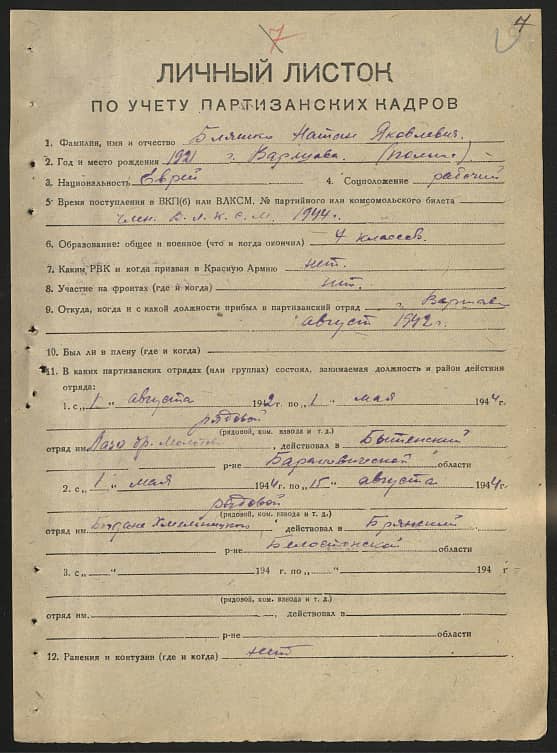 7
4
ЛИЧНЫЙ ЛИСТОК
ПО УЧЕТУ ПАРТИЗАНСКИХ КАДРОВ
1. Фамилия, имя и отчество Бляшко Натан Яковлевич.
2. Год и место рождения 1921 г. Варшава. (Польша)
3. Национальность Еврей 4. Соцположение рабочий
5. Время поступления в ВКП(б) или ВЛКСМ, № партийного или комсомольского билета
член В.Л.К.С.М. 1944 г.
6. Образование: общее и военное (что и когда окончил) 4 классов.
7. Каким РВК и когда призван в Красную Армию нет.
8. Участие на фронтах (где и когда) нет.
9. Откуда, когда и с какой должности прибыл в партизанский отряд г. Варшава
август 1942 г.
10. Был ли в плену (где и когда)
11. В каких партизанских отрядах (или группах) состоял, занимаемая должность и район действия
отряда:
1. с „1" августа 1942 г. по „1" мая 1944 г.
рядовой
(рядовой, ком. взвода и т. д.)
отряд им. Лазо бр. Молотов , действовал в Бытенский
р-не Барановической области
2. с „1" мая 1944 г. по „15" августа 1944 г.
рядовой
(рядовой, ком. взвода и т. д.)
отряд им. Богдана Хмельницкого действовал в Брянский
р-не Белостокской области
3. с „ " 194 г. по „ " 194 г
(рядовой, ком. взвода и т. д.)
отряд им. , действовал в
р-не области
12. Ранения и контузии (где и когда) нет